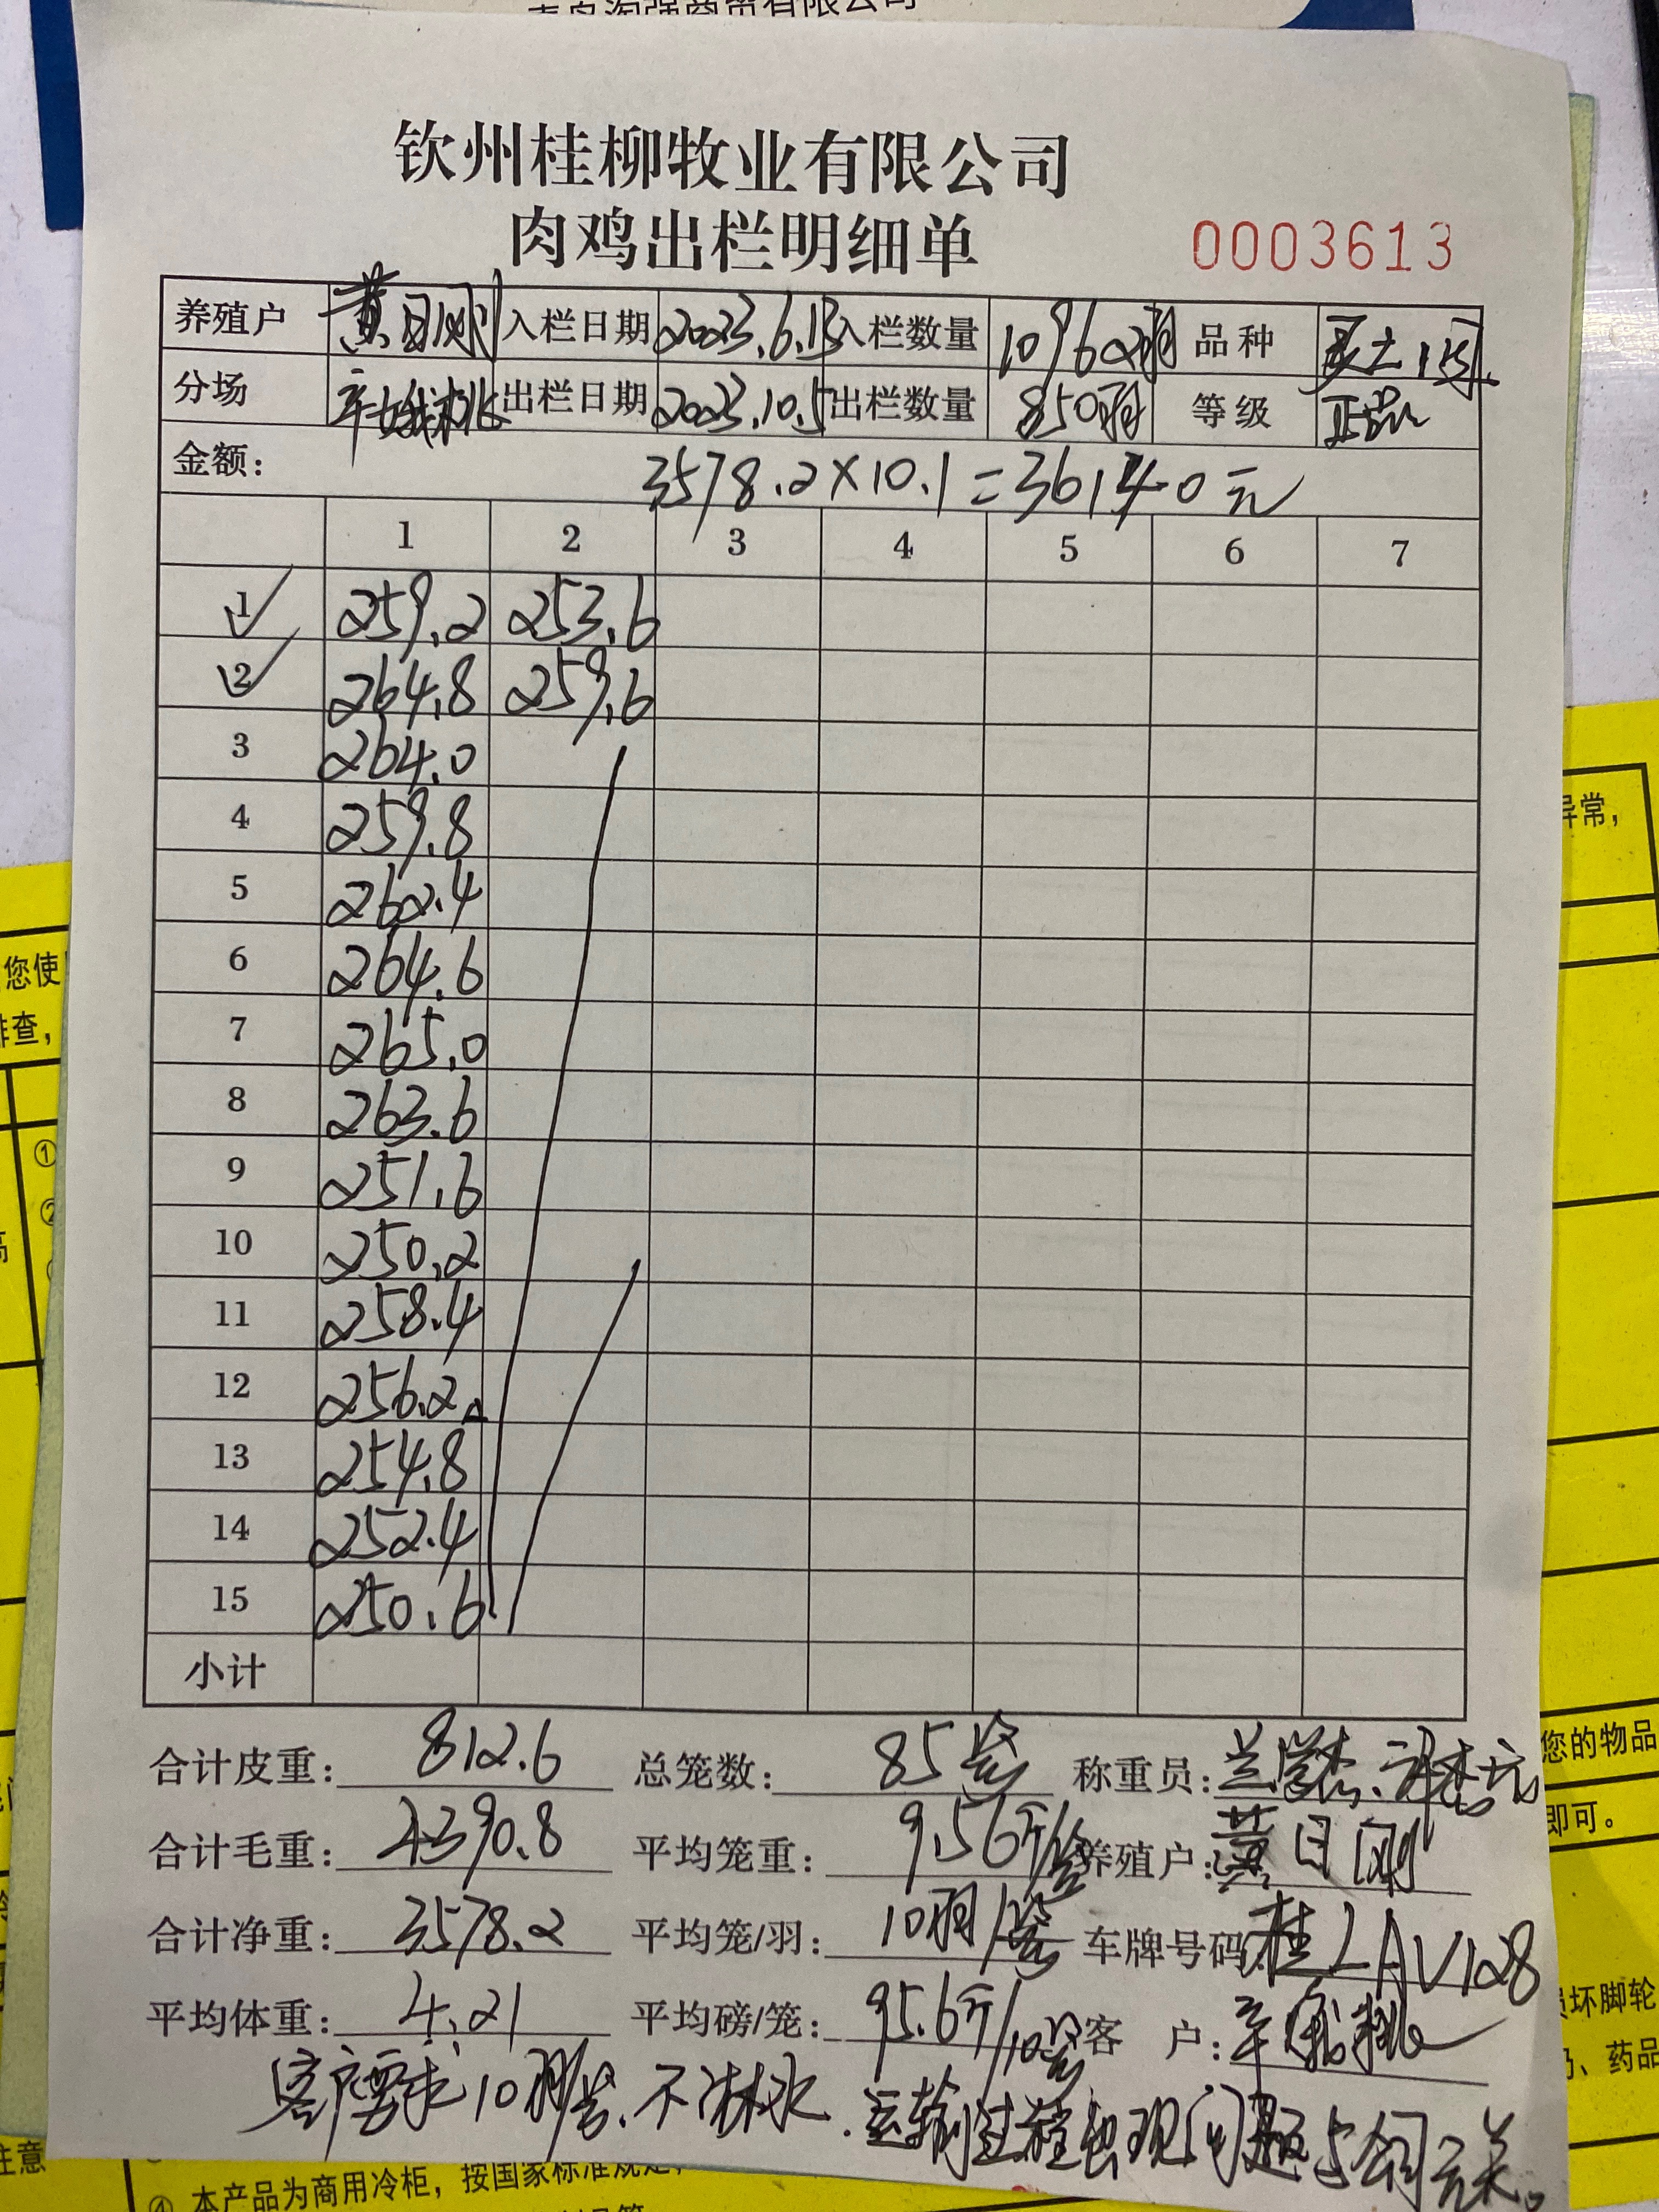 钦州桂柳牧业有限公司
肉鸡出栏明细单 0003613
养殖户 黄日刚 入栏日期 2023.6.13 入栏数量 10960羽 品种
分场 出栏日期 2023.10.5 出栏数量 850羽 等级
金额: 3578.2×10.1=36140元
1 2 3 4 5 6 7
1 259.2 253.6
2 264.8 259.6
3 264.0
4 259.8
5 262.4
6 264.6
7 265.0
8 263.6
9 251.6
10 250.2
11 258.4
12 256.2
13 254.8
14 252.4
15 250.6
小计
合计皮重: 812.6 总笼数: 85笼 称重员:
合计毛重: 4390.8 平均笼重: 9.56斤/笼 养殖户: 黄日刚
合计净重: 3578.2 平均笼/羽: 10羽/笼 车牌号码: 桂LAV128
平均体重: 4.21 平均磅/笼: 95.6斤/10笼 客 户:
客户要求10羽/笼、不淋水.运输过程出现问题与公司无关。
异常,
您使
排查,
①
您的物品
即可。
损坏脚轮
药品
注意
④ 本产品为商用冷柜，按国家标准规定，